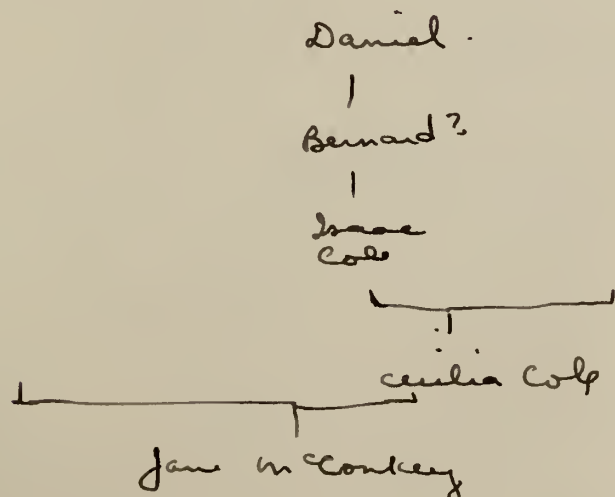 Daniel.
Bernard?
Isaac
Cole
Cecilia Cole
Jane McConkey